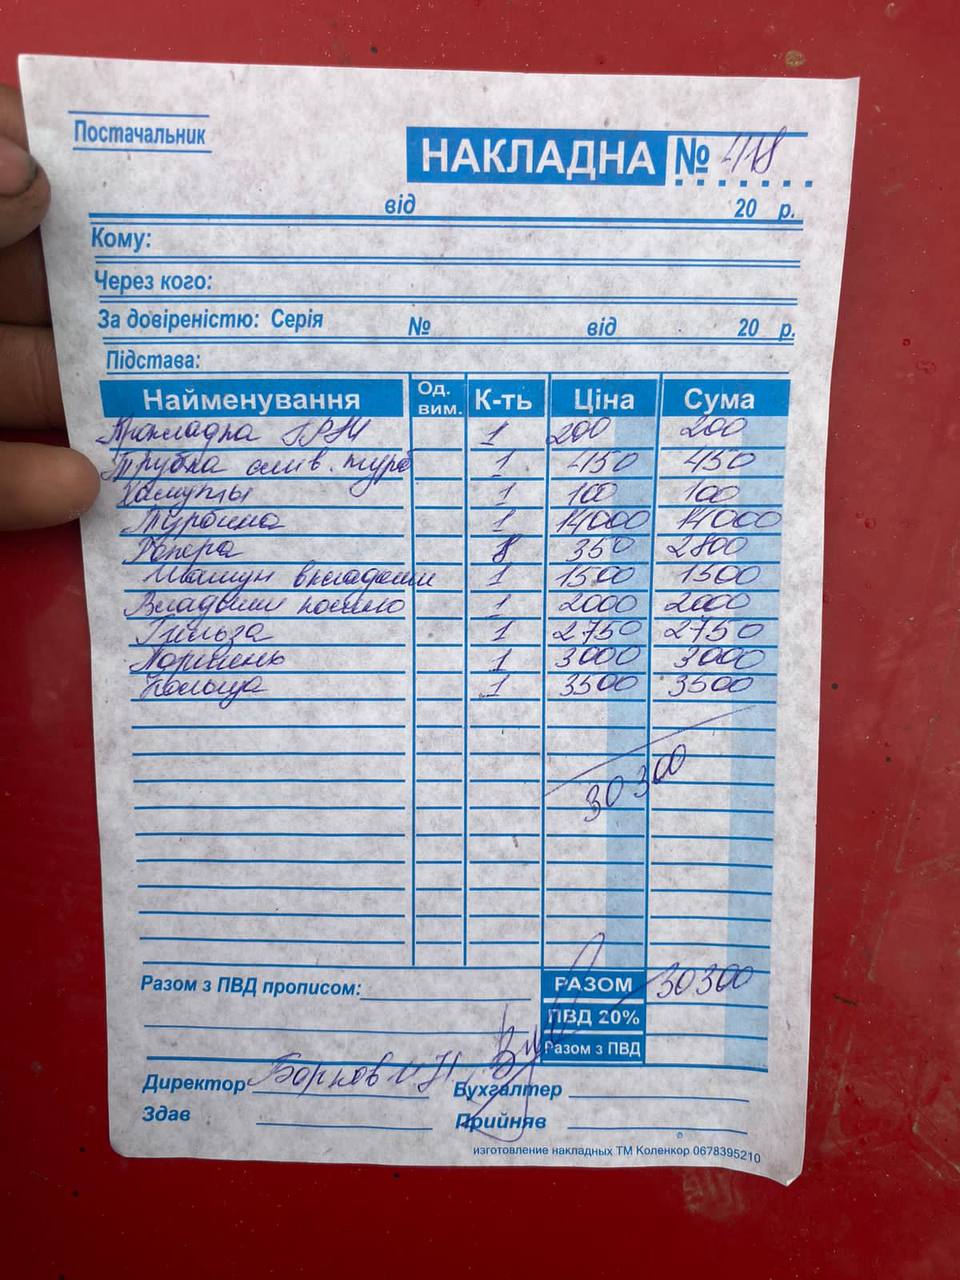 Постачальник
НАКЛАДНА № 418
від 20 р.
Кому:
Через кого:
За довіреністю: Серія № від 20 р.
Підстава:
Найменування Од. вим. К-ть Ціна Сума
Прокладка 1 200 200
Трубка слив. турб 1 450 450
Хамуты 1 100 100
Турбина 1 14000 14000
8 350 2800
Шатун вкладыши 1 1500 1500
Вкладыши 1 2000 2000
Гильза 1 2750 2750
Поршень 1 3000 3000
Кольца 1 3500 3500
30300
Разом з ПВД прописом: РАЗОМ 30300
ПВД 20%
Разом з ПВД
Директор Бухгалтер
Здав Прийняв
изготовление накладных ТМ Коленкор 0678395210